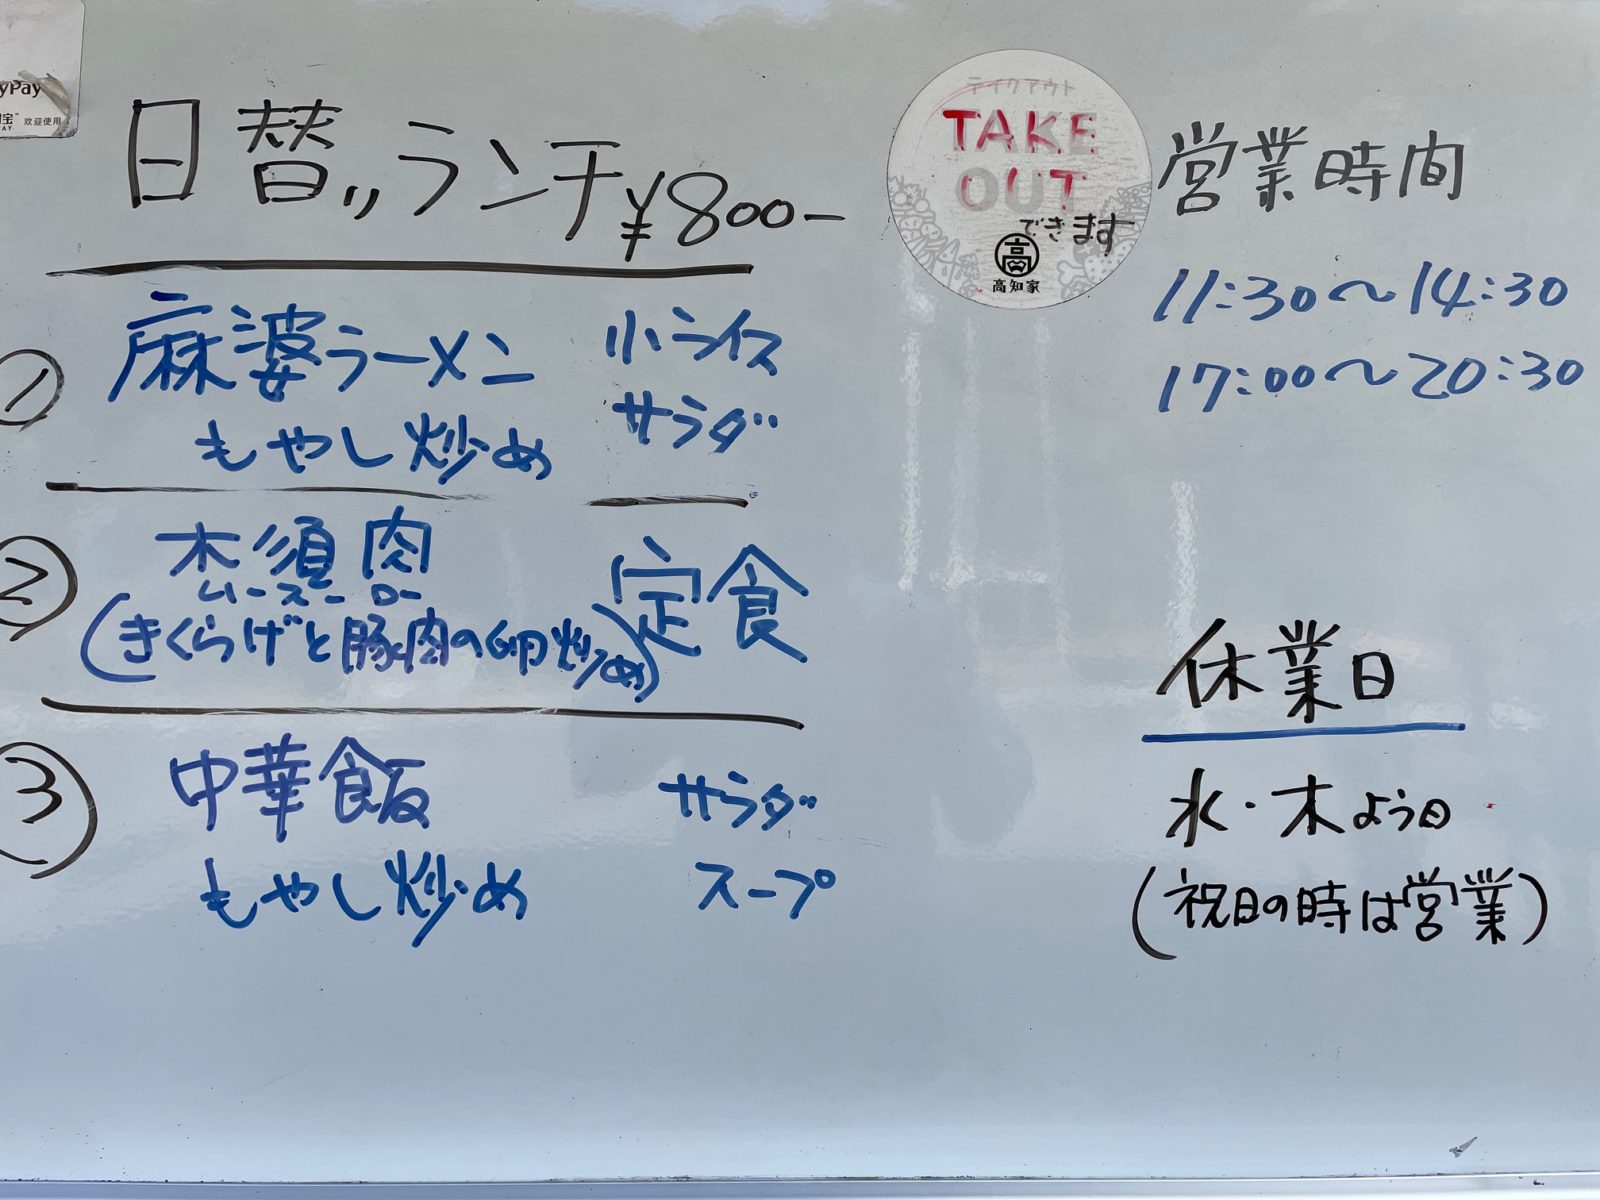 yPay
欢迎使用
日替りランチ ¥800-
① 麻婆ラーメン 小ライス
もやし炒め サラダ
② 木須肉 定食
ムースーロー
(きくらげと豚肉の卵炒め)
③ 中華飯 サラダ
もやし炒め スープ
テイクアウト
TAKE
OUT
できます
高
高知家
営業時間
11:30〜14:30
17:00〜20:30
休業日
水・木よう日
(祝日の時は営業)